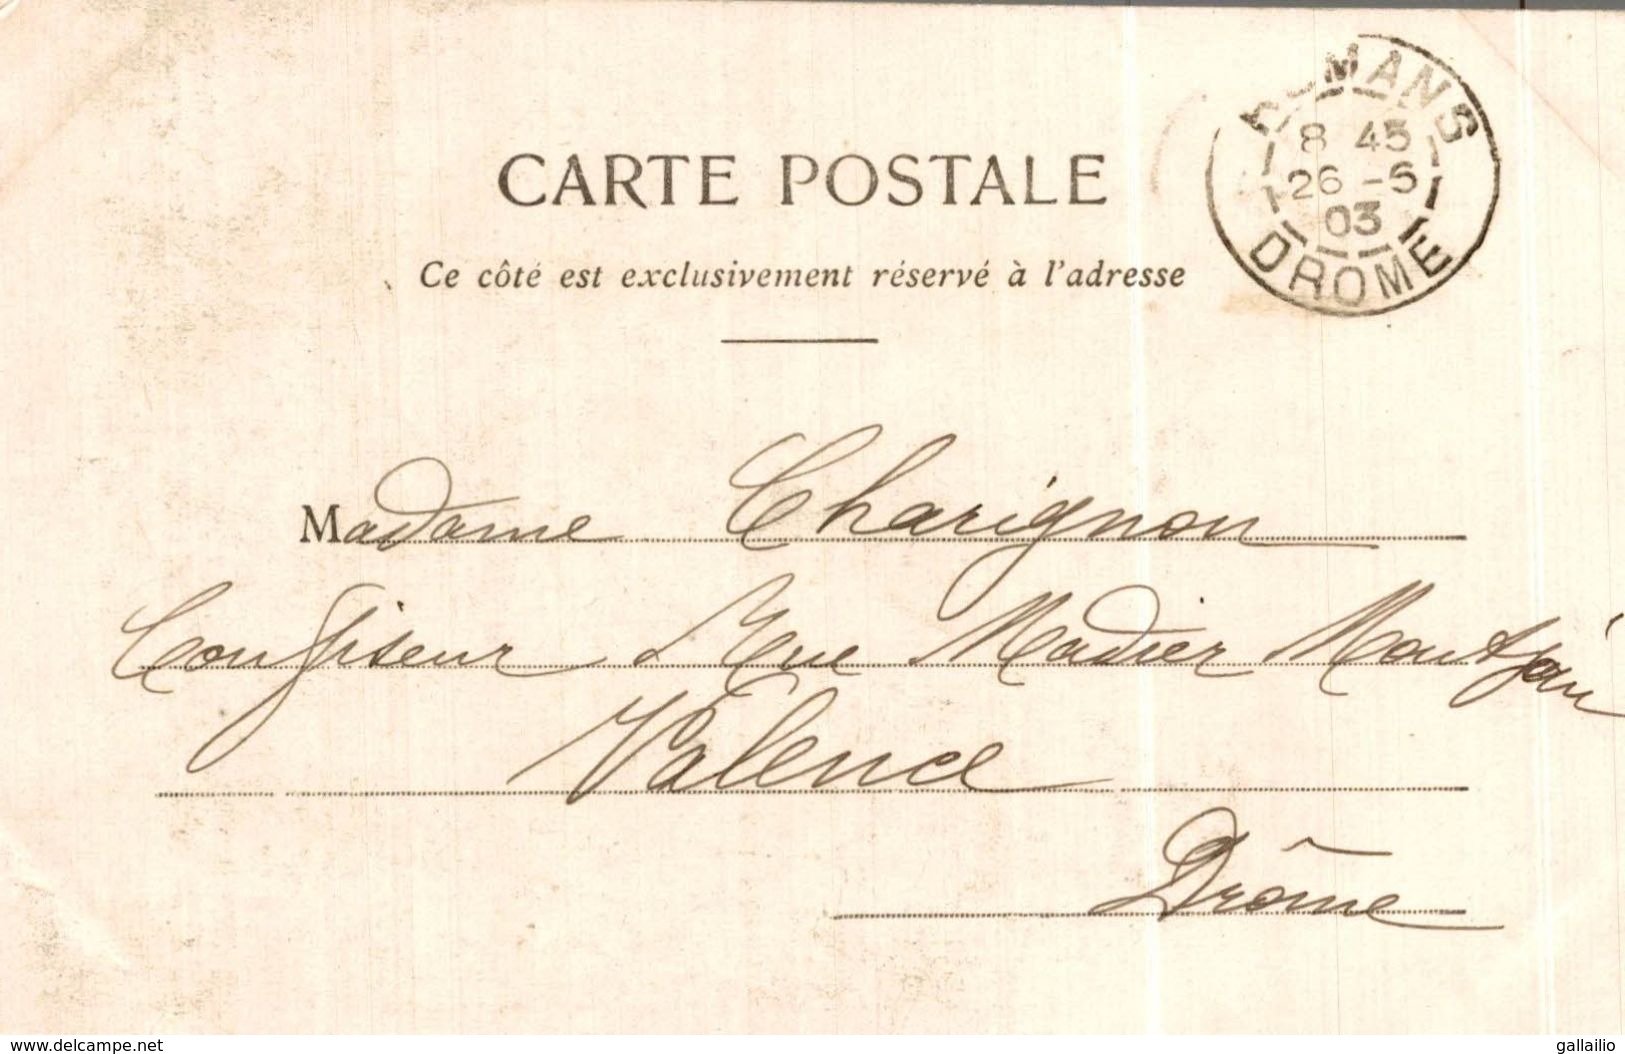 ROMANS
8 45
26 -5
03
DROME
CARTE POSTALE
Ce côté est exclusivement réservé à l'adresse
Madame Charignon
Confiseur Rue Madier Montjau
Valence
Drôme
www.delcampe.net
gallailio